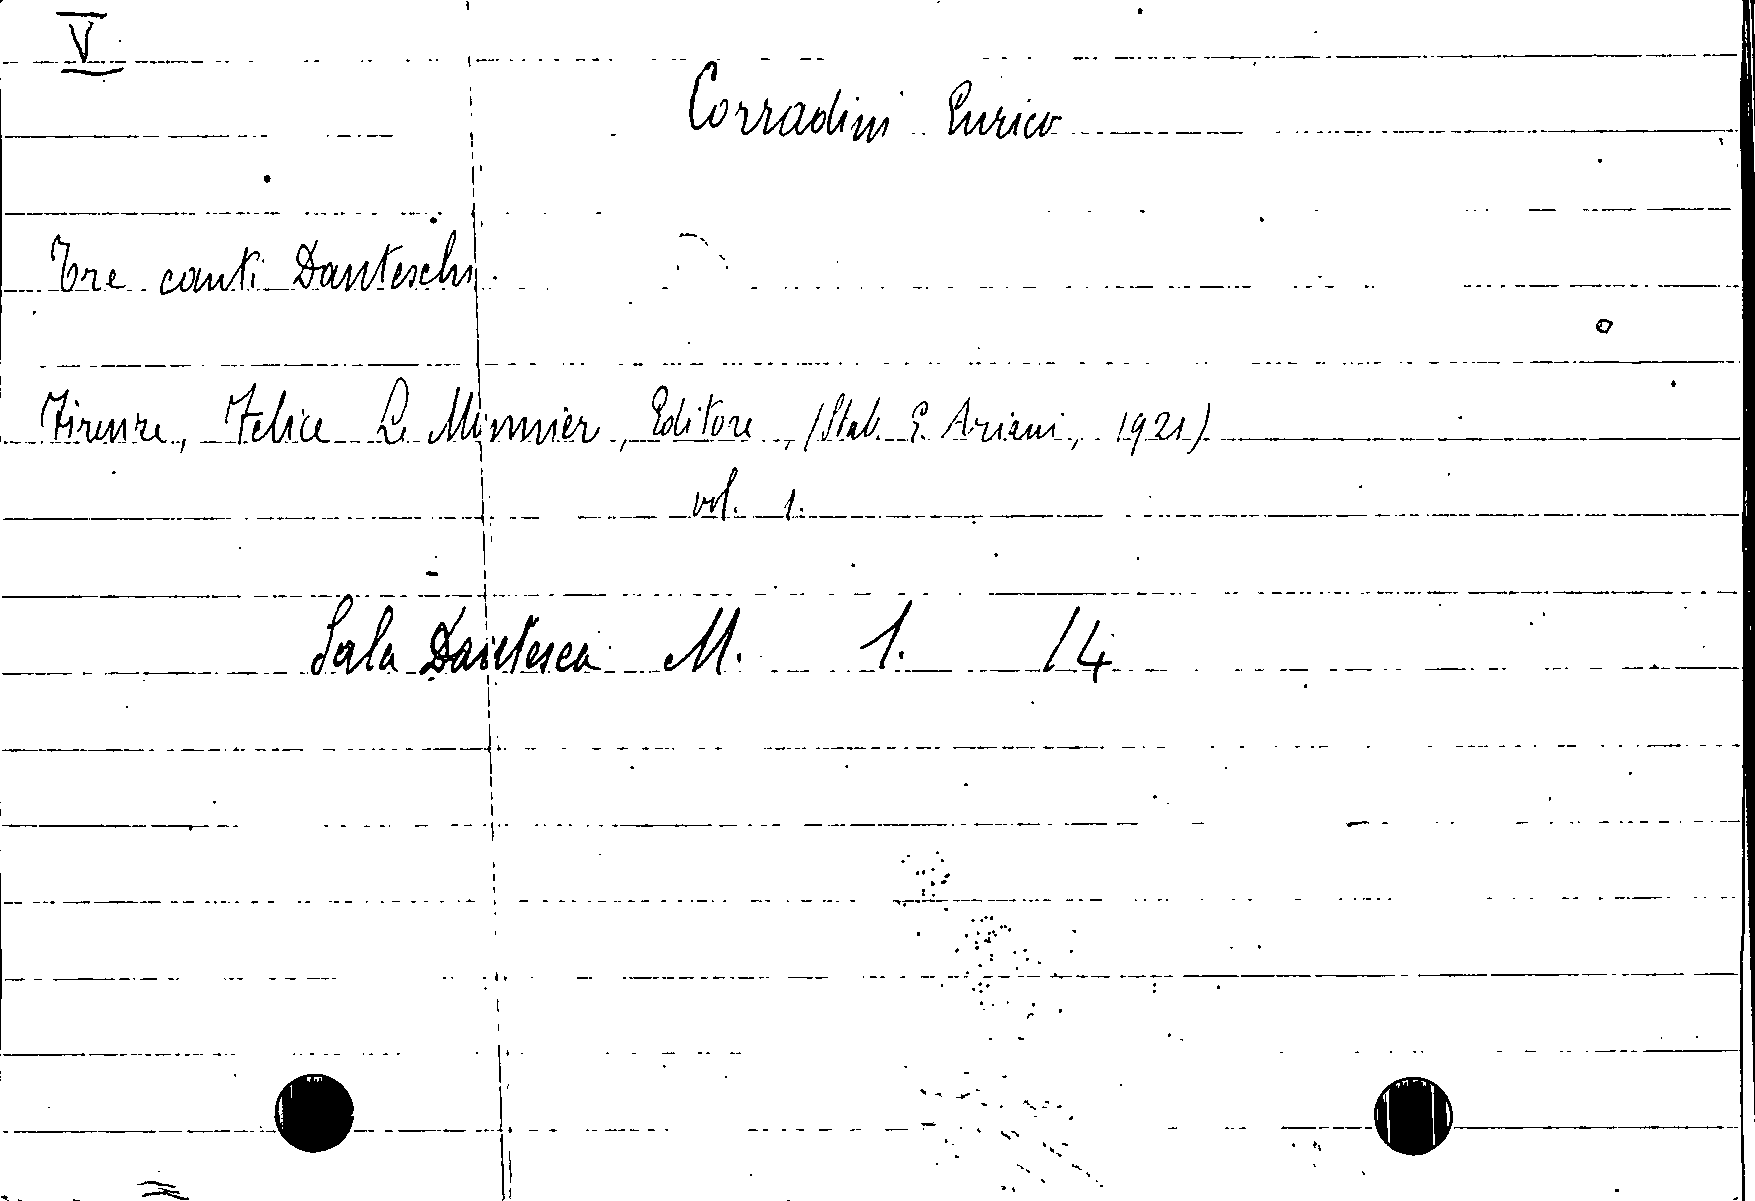 V
Corradini Enrico
Tre canti Danteschi.
Firenze, Felice Le Monnier, Editore, (Stab. E. Ariani, 1921)
vol. 1.
Sala Dantesca M. 1. 14